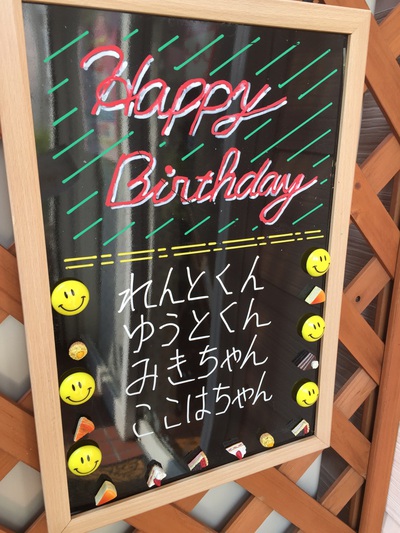 Happy
Birthday
れんとくん
ゆうとくん
みきちゃん
ここはちゃん